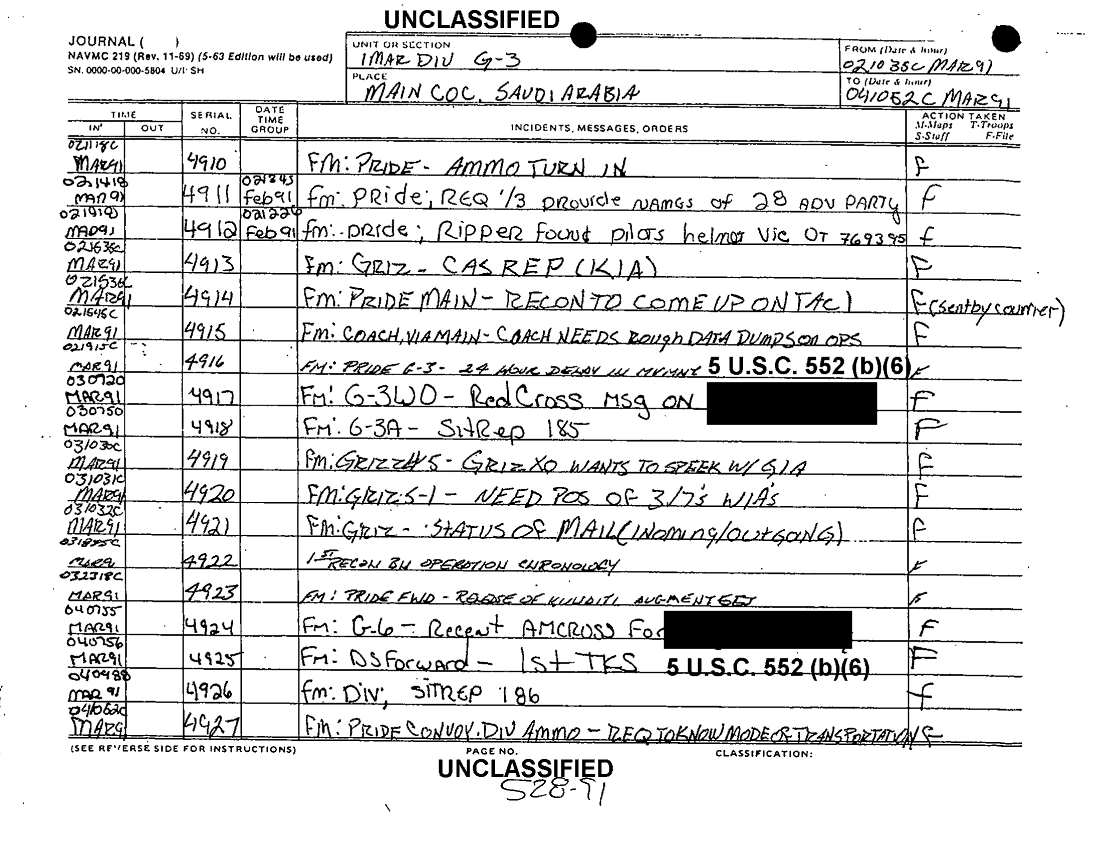 UNCLASSIFIED
JOURNAL ( )
NAVMC 219 (Rev. 11-69) (5-63 Edition will be used)
SN. 0000-00-000-5804 U/I SH
UNIT OR SECTION
1 MAR DIV G-3
PLACE
MAIN COC, SAUDI ARABIA
FROM (Date & hour)
021035C MAR91
TO (Date & hour)
041052C MAR91
TIME
IN OUT
SERIAL NO.
DATE TIME GROUP
INCIDENTS, MESSAGES, ORDERS
ACTION TAKEN
M-Maps T-Troops
S-Staff F-File
021118C MAR91 4910 FM: PRIDE - AMMO TURN IN F
021418 MAR91 4911 021345 Feb91 fm: PRide; REQ 1/3 provide NAMES of 28 ADV PARTY f
MAR91 4912 Feb91 fm: pride; Ripper found pilots helmet Vic QT 769395 f
021635C MAR91 4913 Fm: GRIZ - CAS REP (KIA) F
021536C MAR91 4914 Fm: PRIDE MAIN - RECON TO COME UP ON TAC 1 F (sent by courrier)
021645C MAR91 4915 Fm: COACH, VIA MAIN - COACH NEEDS Rough DATA DUMPS ON OPS F
021915C MAR91 4916 FM: PRIDE G-3 - 24 HOUR DELAY IN MVMNT 5 U.S.C. 552 (b)(6) F
030720 MAR91 4917 Fm: G-3WO - Red Cross Msg ON F
030750 MAR91 4918 Fm: G-3A - SitRep 185 F
031030C MAR91 4919 Fm: GRIZZ#5 - GRIZ XO WANTS TO SPEEK W/ G1A F
031031C MAR91 4920 Fm: GRIZ S-1 - NEED POS OF 3/7's WIA's F
031032C MAR91 4921 Fm: GRIZ - STATUS OF MAIL (INoming/OutgoNG) F
4922 1ST RECON BN OPERATION CHRONOLOGY F
032318C MAR91 4923 FM: PRIDE FWD - RELEASE OF AUGMENTEES F
040755 MAR91 4924 Fm: G-6 - Recent AMCROSS For F
040756 MAR91 4925 Fm: DS Forward - 1st TKS 5 U.S.C. 552 (b)(6) F
MAR 91 4926 fm: DIV, SITREP 186 f
041052C MAR91 4927 Fm: PRIDE CONVOY. DIV Ammo - REQ TO KNOW MODE OF TRANSPORTATION F
(SEE REVERSE SIDE FOR INSTRUCTIONS)
PAGE NO.
CLASSIFICATION:
UNCLASSIFIED
S28-91